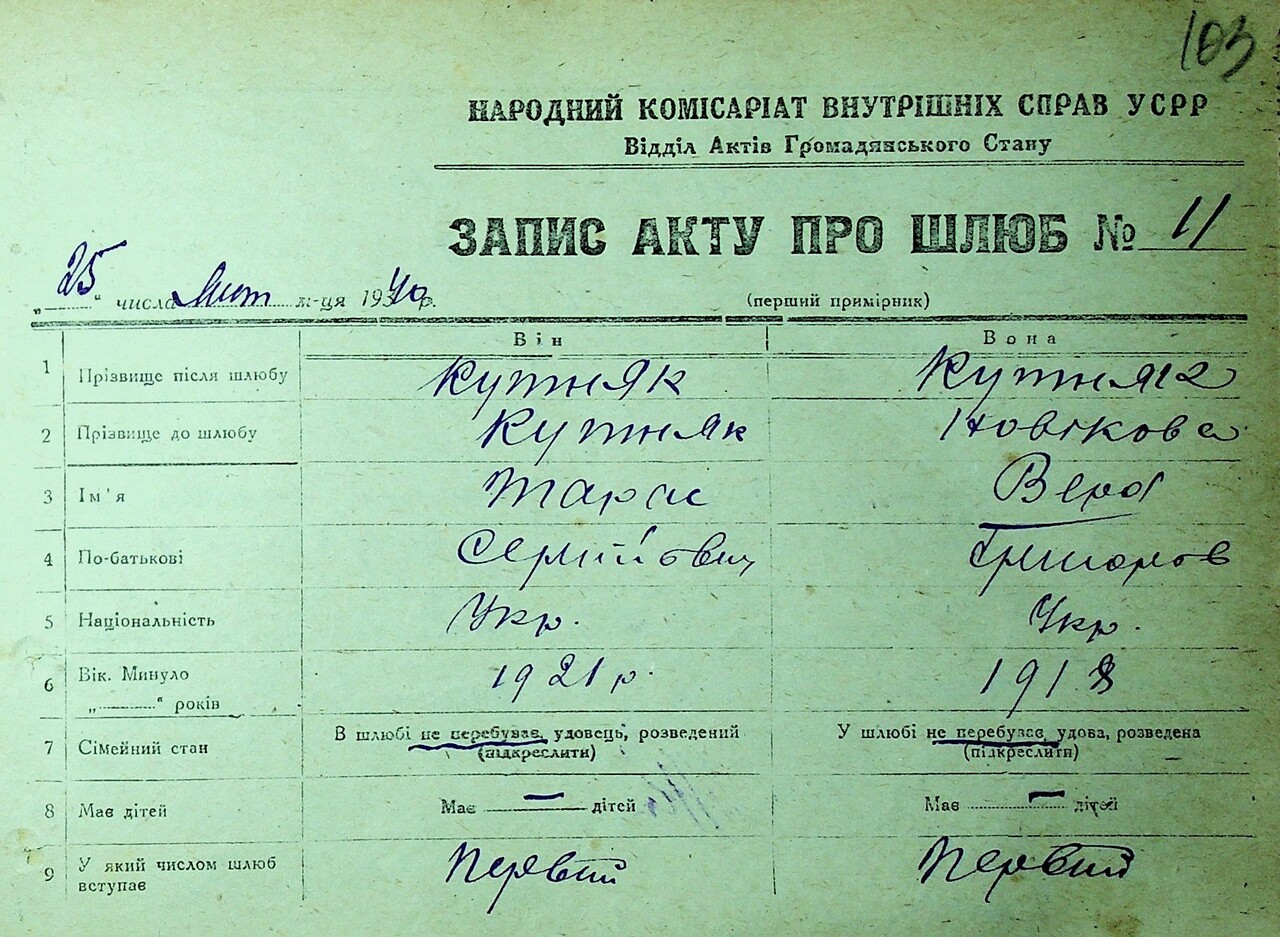 103
НАРОДНИЙ КОМІСАРІАТ ВНУТРІШНІХ СПРАВ УСРР
Відділ Актів Громадянського Стану
ЗАПИС АКТУ ПРО ШЛЮБ № 11
„25“ числа Лют м-ця 1940 р. (перший примірник)
Він Вона
1 Прізвище після шлюбу Кутняк Кутняк
2 Прізвище до шлюбу Кутняк Новікова
3 Ім'я Тарас Вера
4 По-батькові Сергійович Григоров
5 Національність Укр. Укр.
6 Вік. Минуло 1921 р. 1918
„ “ років
7 Сімейний стан В шлюбі не перебував, удовець, розведений У шлюбі не перебуває, удова, розведена
(підкреслити) (підкреслити)
8 Має дітей Має — дітей Має — дітей
9 У який числом шлюб Первий Первий
вступає